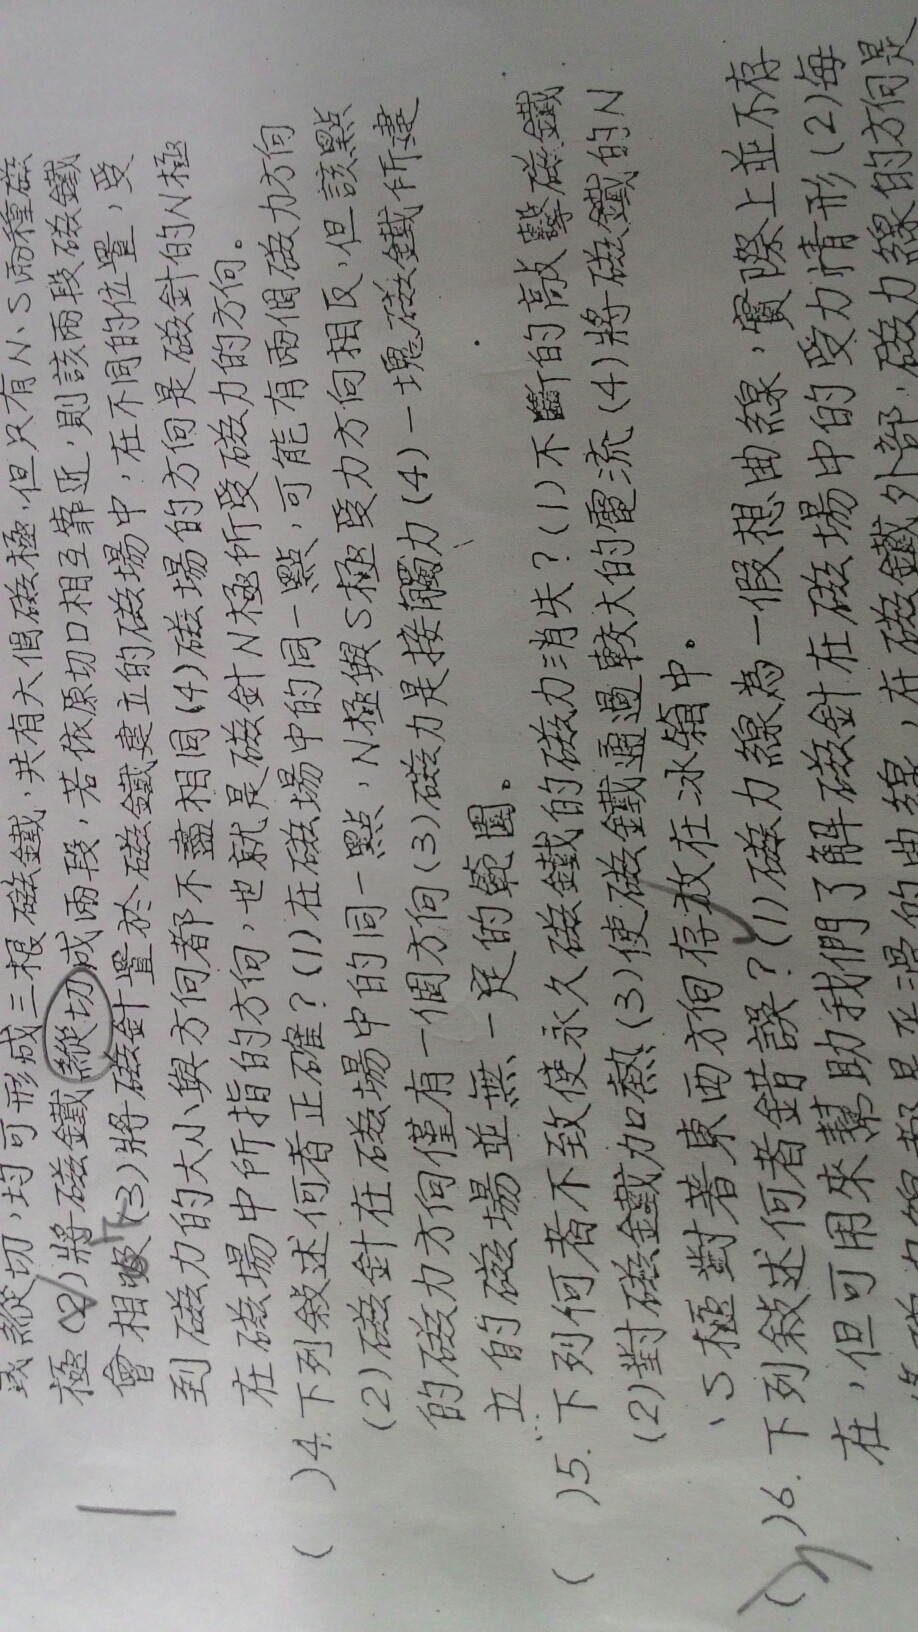 或縱切,均可形成三根磁鐵,共有六個磁極,但只有N、S兩種磁
極(2)將磁鐵縱切成兩段,若依原切口相互靠近,則該兩段磁鐵
會相吸(3)將磁針置於磁鐵建立的磁場中,在不同的位置,受
到磁力的大小與方向都不盡相同(4)磁場的方向是磁針的N極
在磁場中所指的方向,也就是磁針N極所受磁力的方向。
( )4.下列敘述何者正確?(1)在磁場中的同一點,可能有兩個磁力方向
(2)磁針在磁場中的同一點,N極與S極受力方向相反,但該點
的磁力方向僅有一個方向(3)磁力是接觸力(4)一塊磁鐵所建
立的磁場並無一定的範圍。
( )5.下列何者不致使永久磁鐵的磁力消失?(1)不斷的敲擊磁鐵
(2)對磁鐵加熱(3)使磁鐵通過較大的電流(4)將磁鐵的N
、S極對著東西方向存放在冰箱中。
( )6.下列敘述何者錯誤?(1)磁力線為一假想曲線,實際上並不存
在,但可用來幫助我們了解磁針在磁場中的受力情形(2)每
都是平滑的曲線,在磁鐵外部,磁力線的方向是